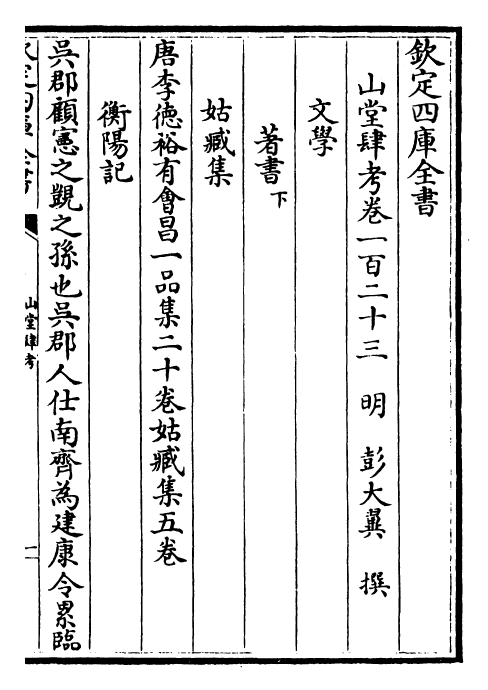 欽定四庫全書
山堂肆考卷一百二十三 明 彭大翼 撰
文學
著書下
姑臧集
唐李德裕有會昌一品集二十卷姑臧集五卷
衡陽記
吳郡顧憲之覬之孫也吳郡人仕南齊為建康令累臨
欽定四庫全書
山堂肆考
一